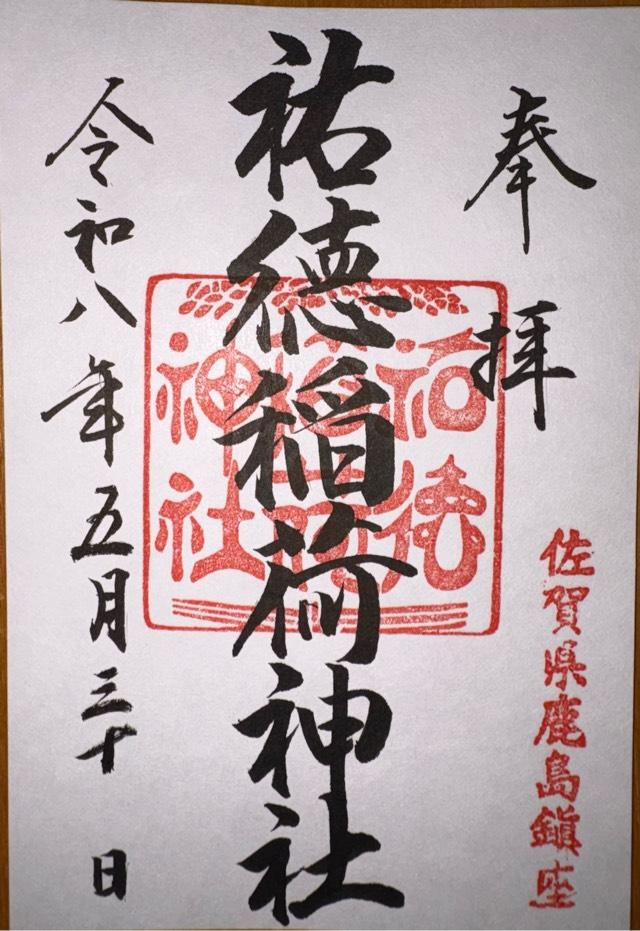 奉拝
佐賀県鹿島鎮座
祐徳稲荷神社
祐徳
稲荷
神社
令和八年五月三十日